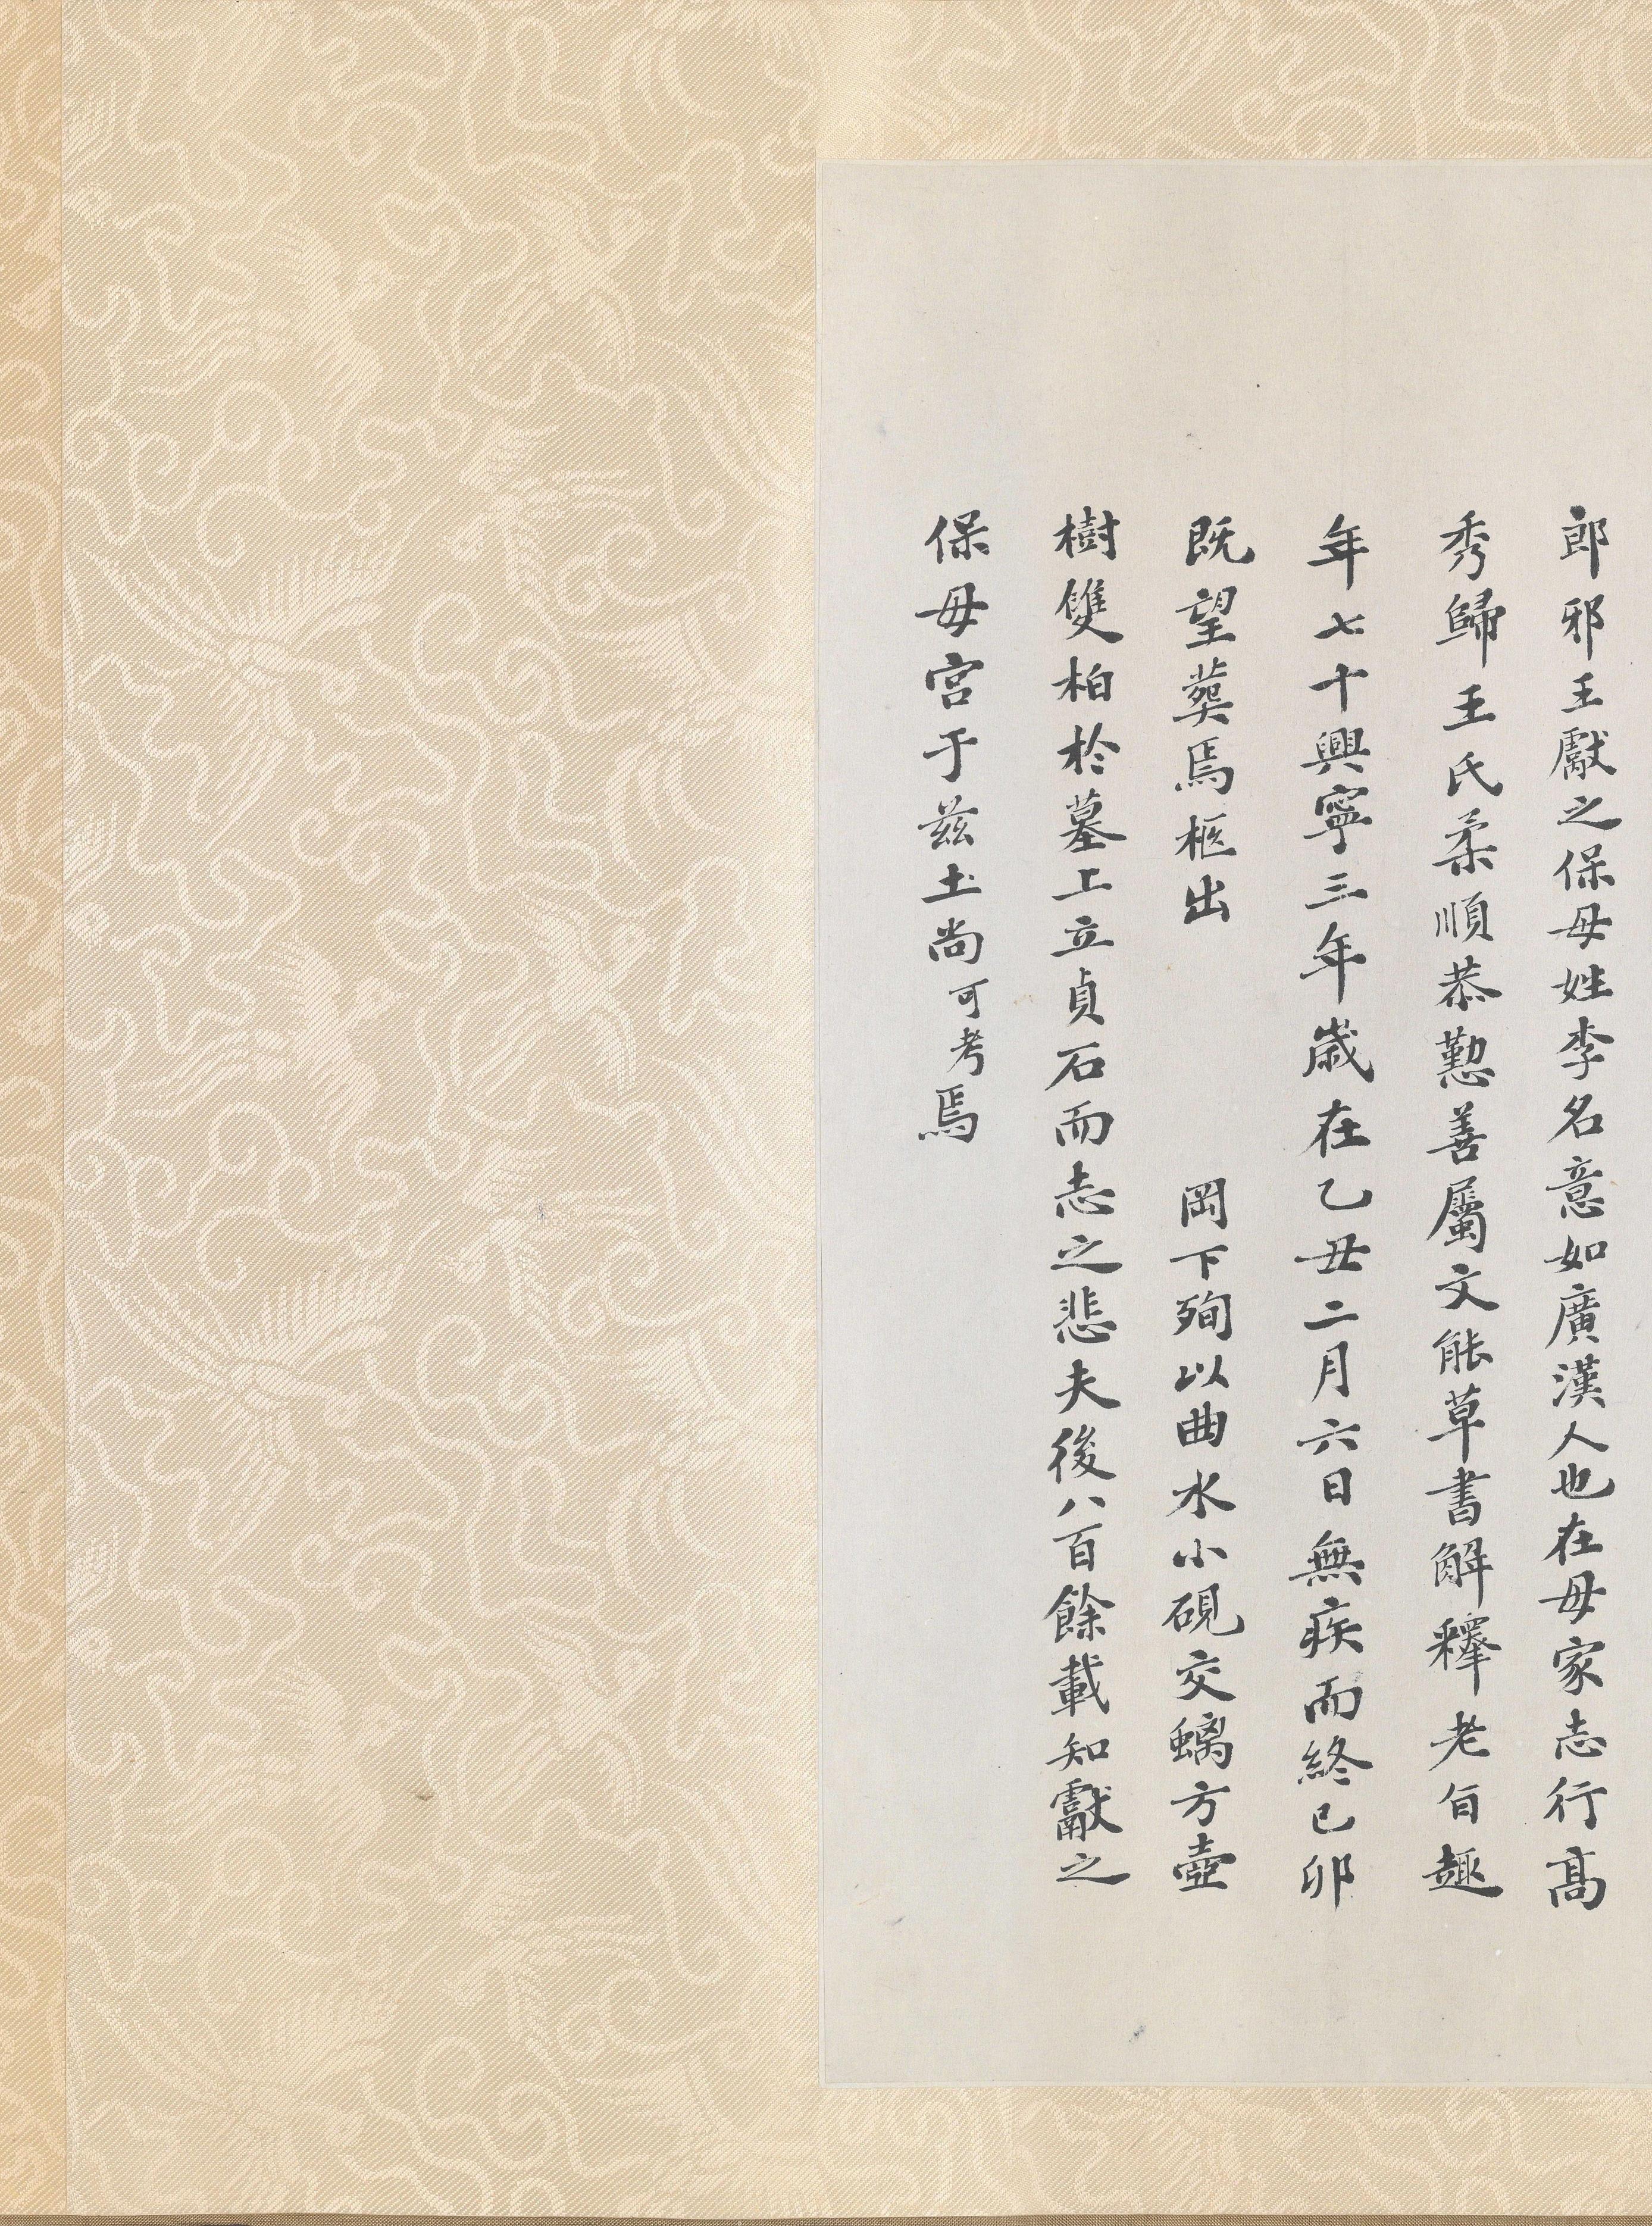 郎邪王獻之保母姓李名意如廣漢人也在母家志行髙
秀歸王氏柔順恭懃善屬文能草書解釋老旨趣
年七十興寧三年歳在乙丑二月六日無疾而終已卯
既望葬焉柩出 岡下殉以曲水小硯交螭方壺
樹雙柏於墓上立貞石而志之悲夫後八百餘載知獻之
保母宮于兹土尚可考焉